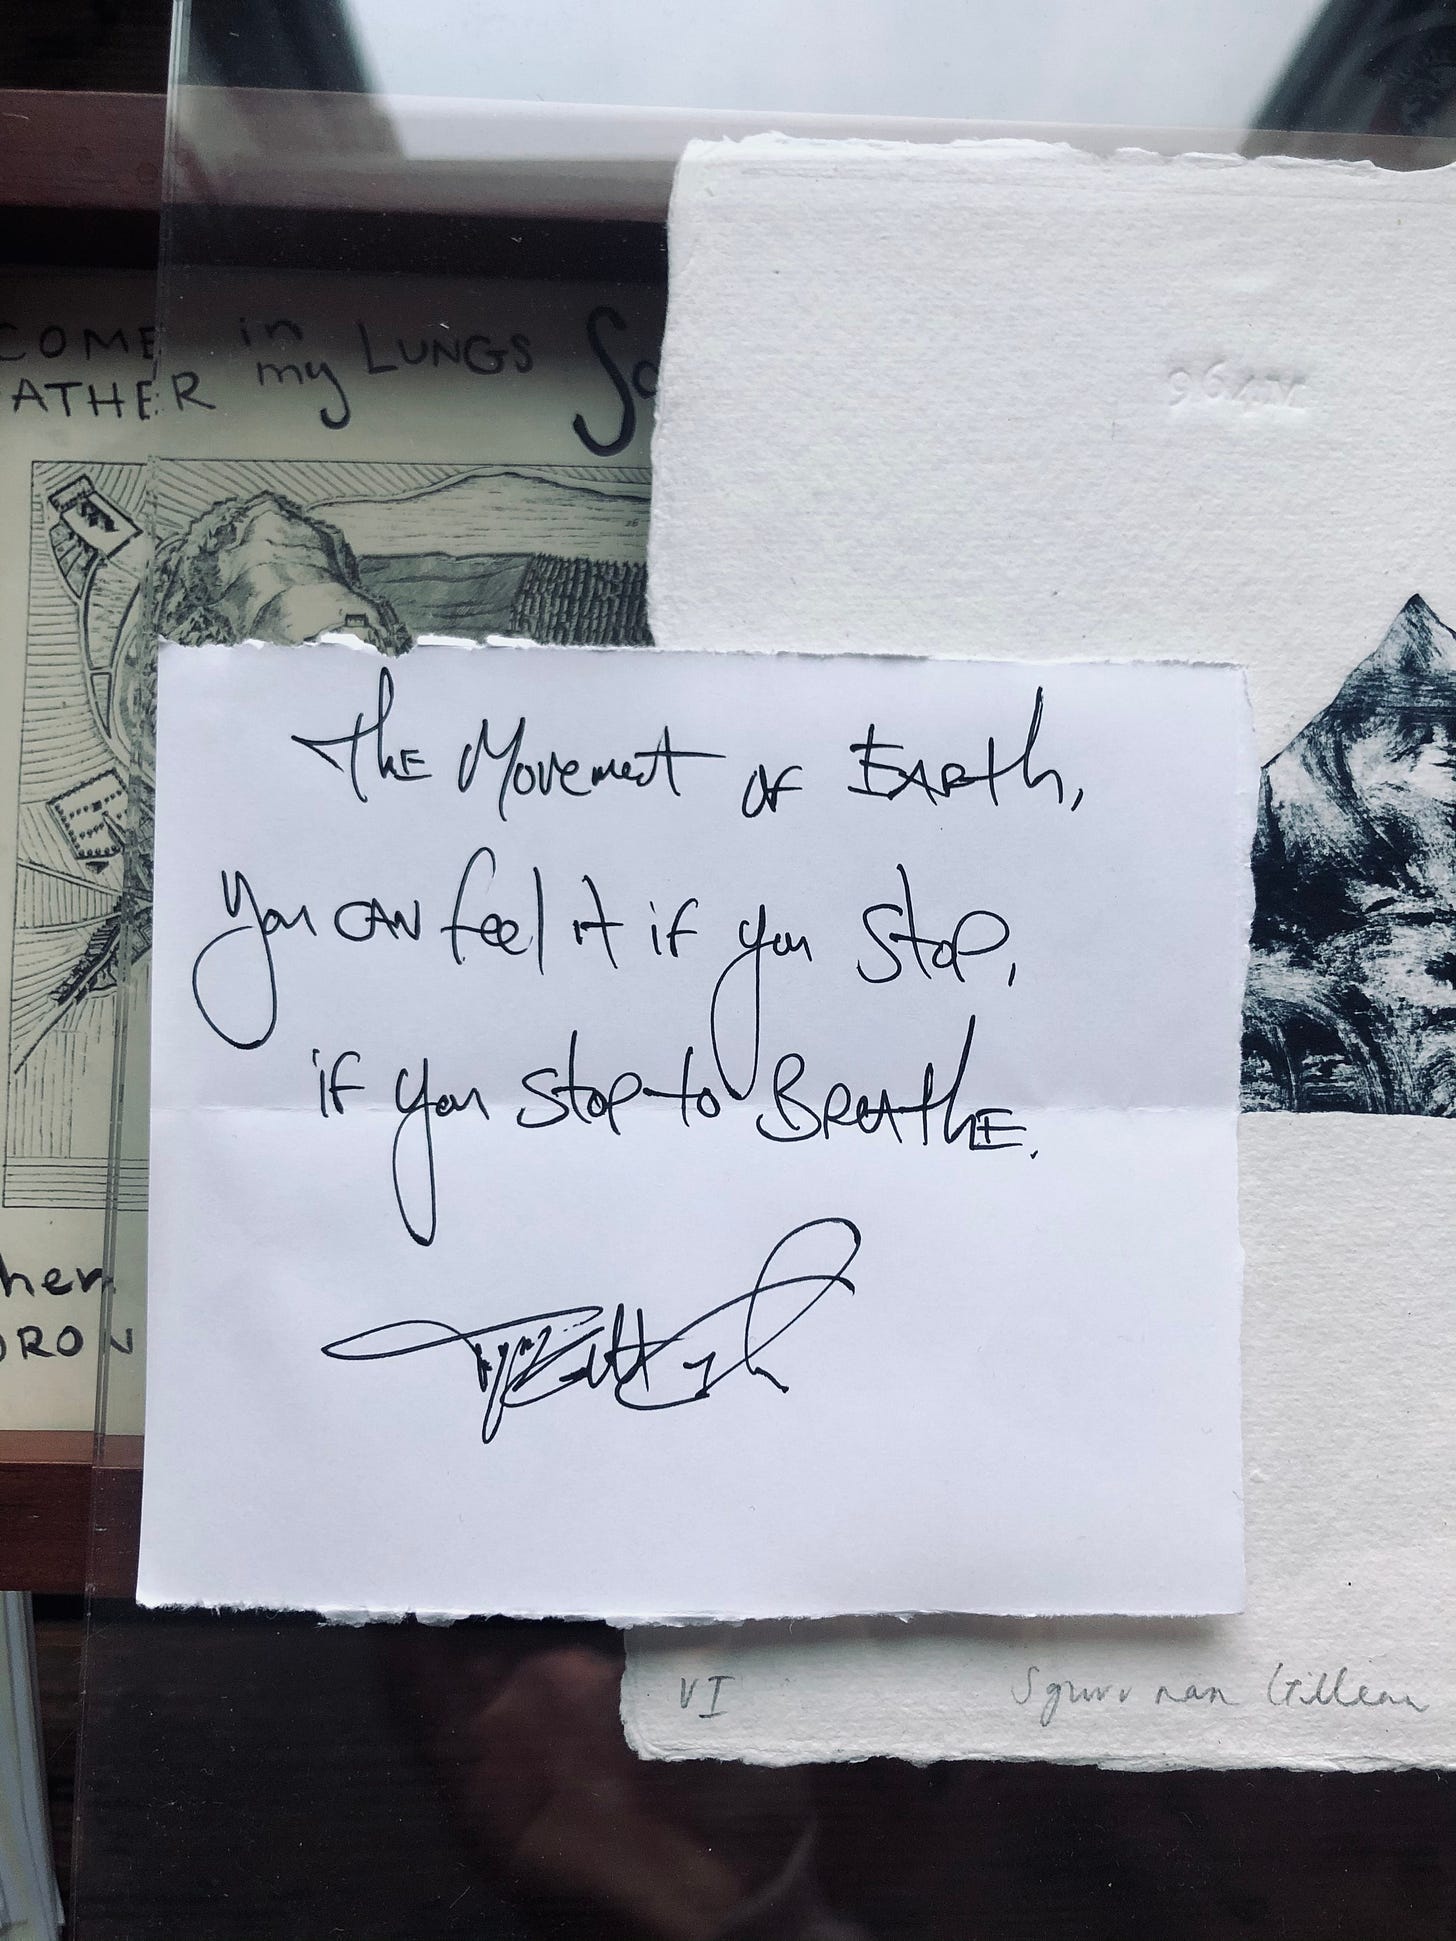 COME in my LUNGS So
ATHER
964M
the Movement of Earth,
you can feel it if you stop,
if you stop to breathe.
her
ORON
VI Sgurr nan Gillean